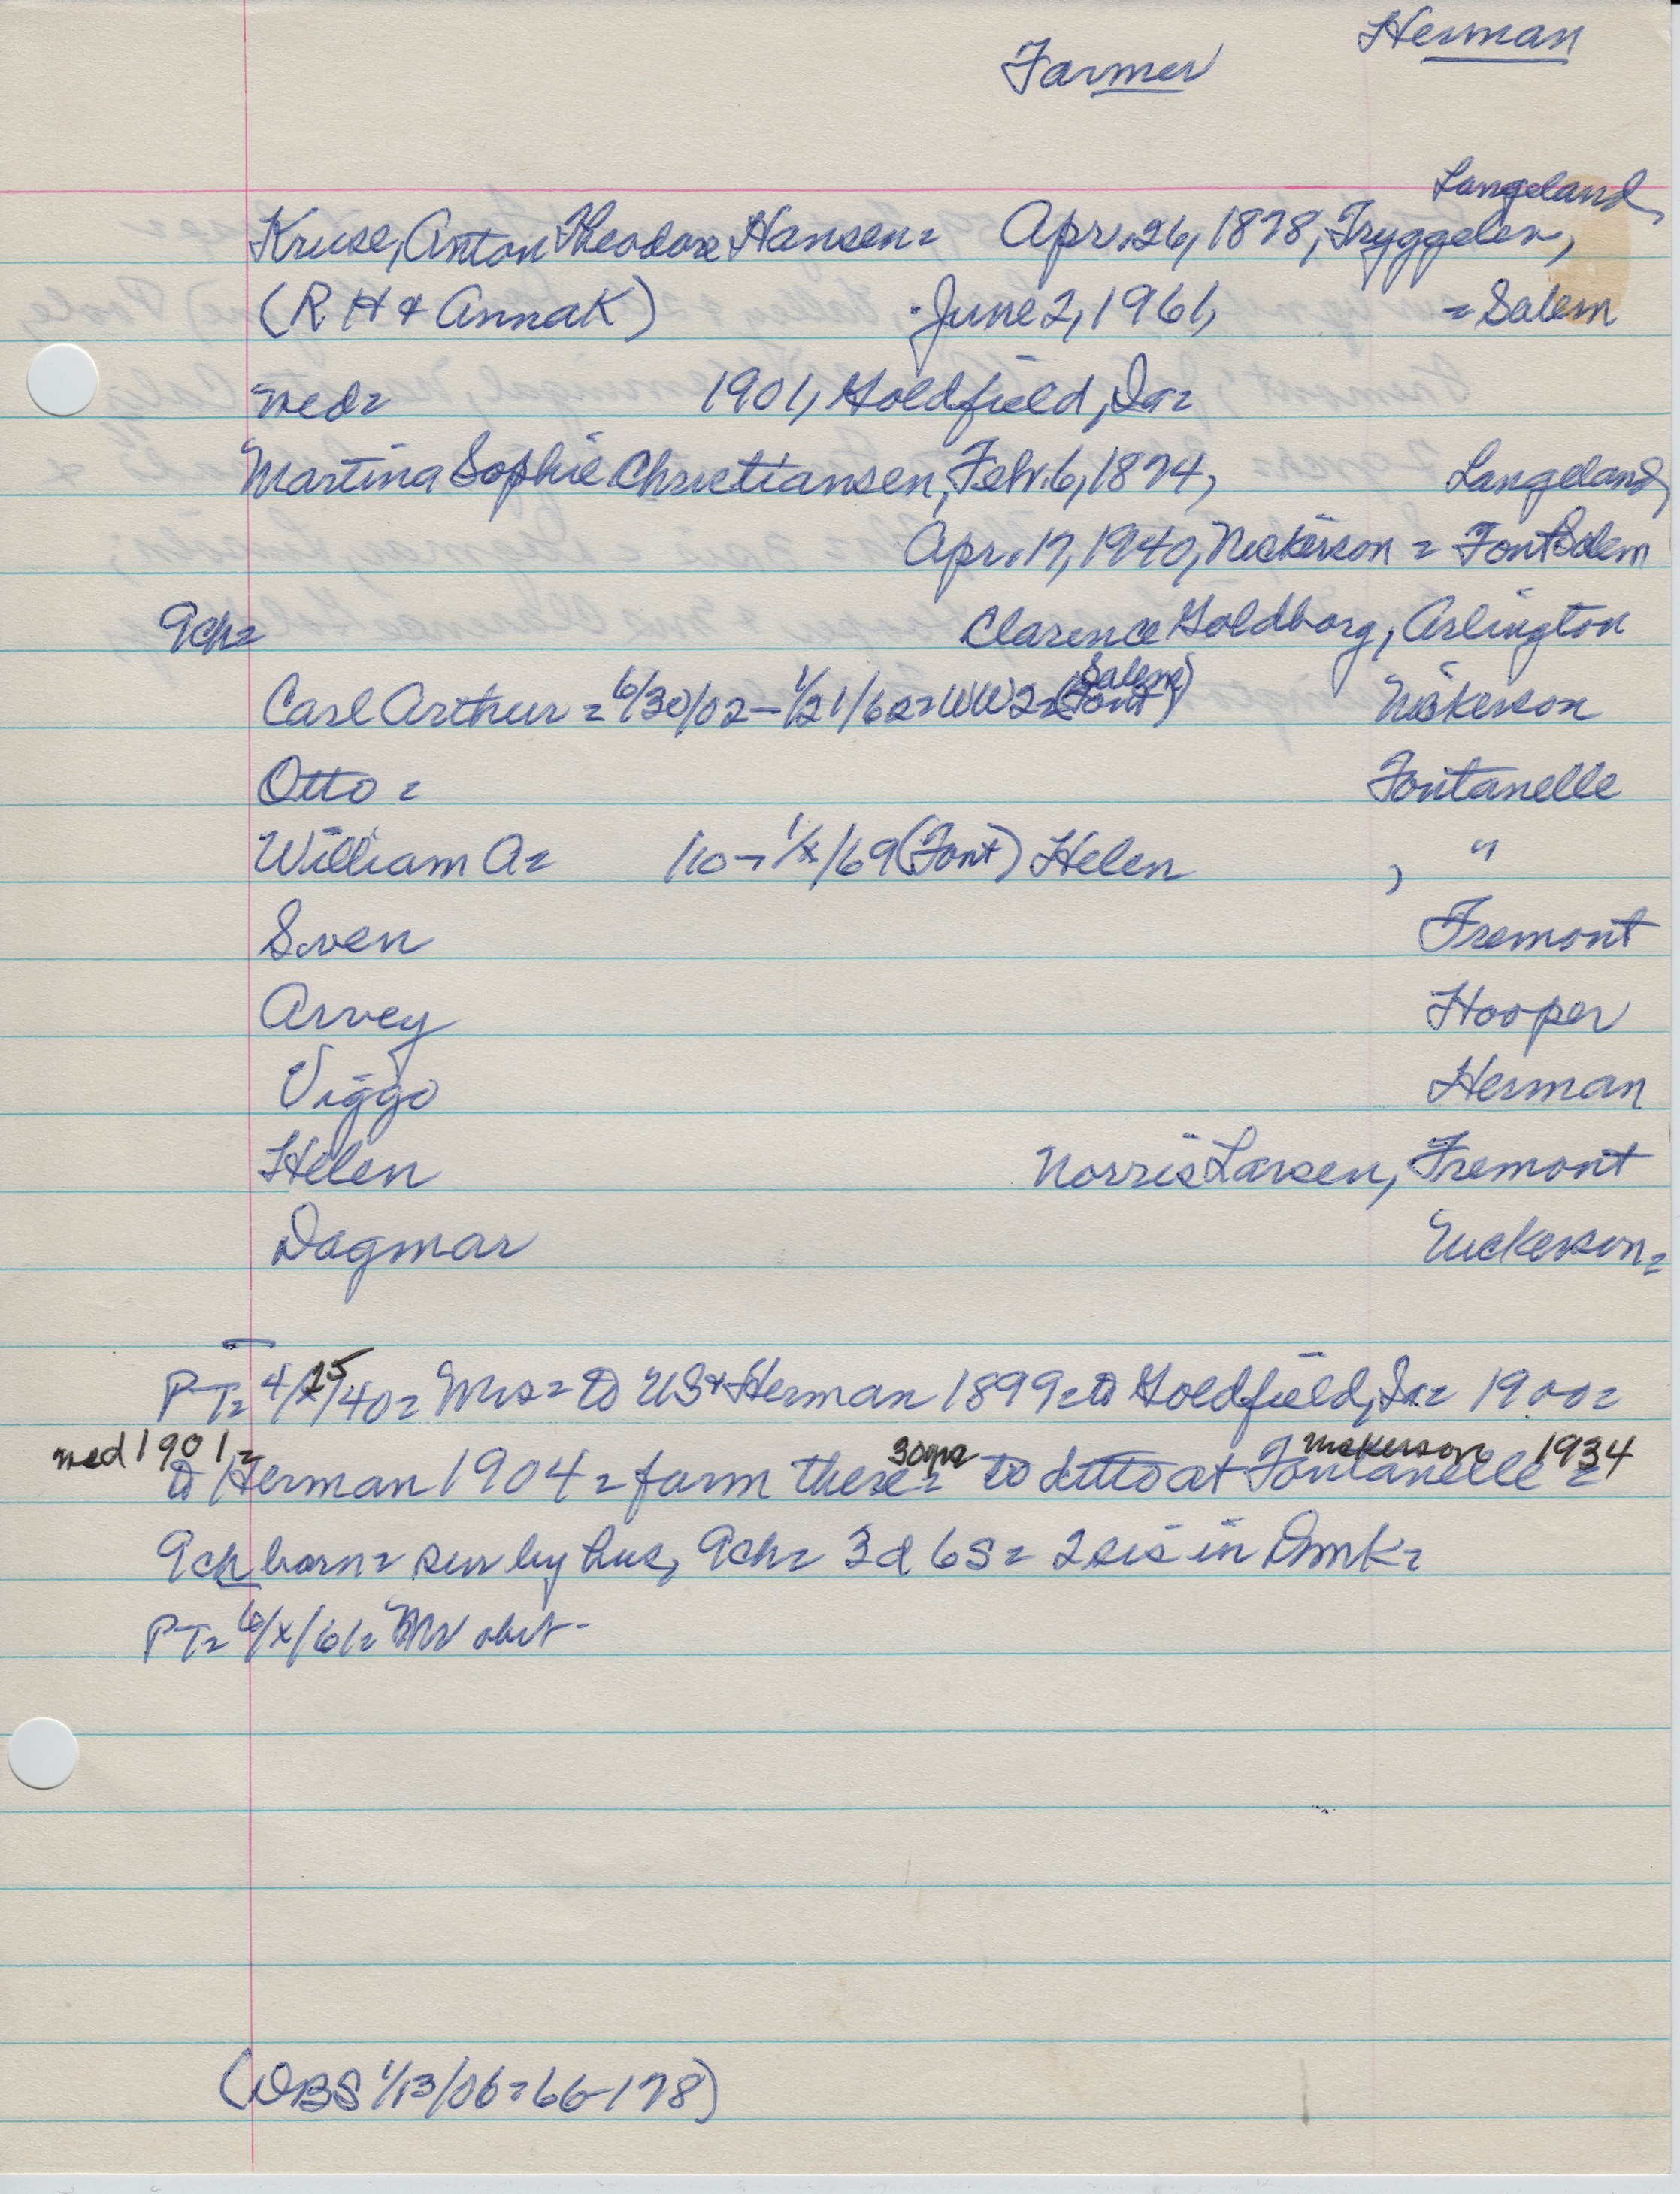 Herman
Farmer
Langeland,
Kruse, Anton Theodore Hansen= Apr. 26, 1878, Tryggelev,
(R H & Anna K) June 2, 1961, = Salem
med= 1901, Goldfield, Ia=
Martina Sophie Christiansen, Febr. 6, 1874, Langeland,
Apr. 17, 1940, Nickerson = Font Salem
9ch= Clarence Goldborg, Arlington
Salem
Carl Arthur = 6/30/02 - 1/21/62= WW2= (Font) Nickerson
Otto = Fontanelle
William A= /10 - 1/x/69 (Font) Helen , "
Sven Fremont
Arvey Hooper
Viggo Herman
Helen Norris Larsen, Fremont
Dagmar Nickerson=
PT= 4/25/40= Mrs= to US & Herman 1899= to Goldfield, Ia= 1900=
med 1901= 30yrs Nickerson 1934
to Herman 1904= farm there= to ditto at Fontanelle =
9ch born= sur by hus, 9ch= 3d 6s= 2sis in Dmk=
PT= 6/x/61= Mr obit-
(DBS 1/13/06=66-178)